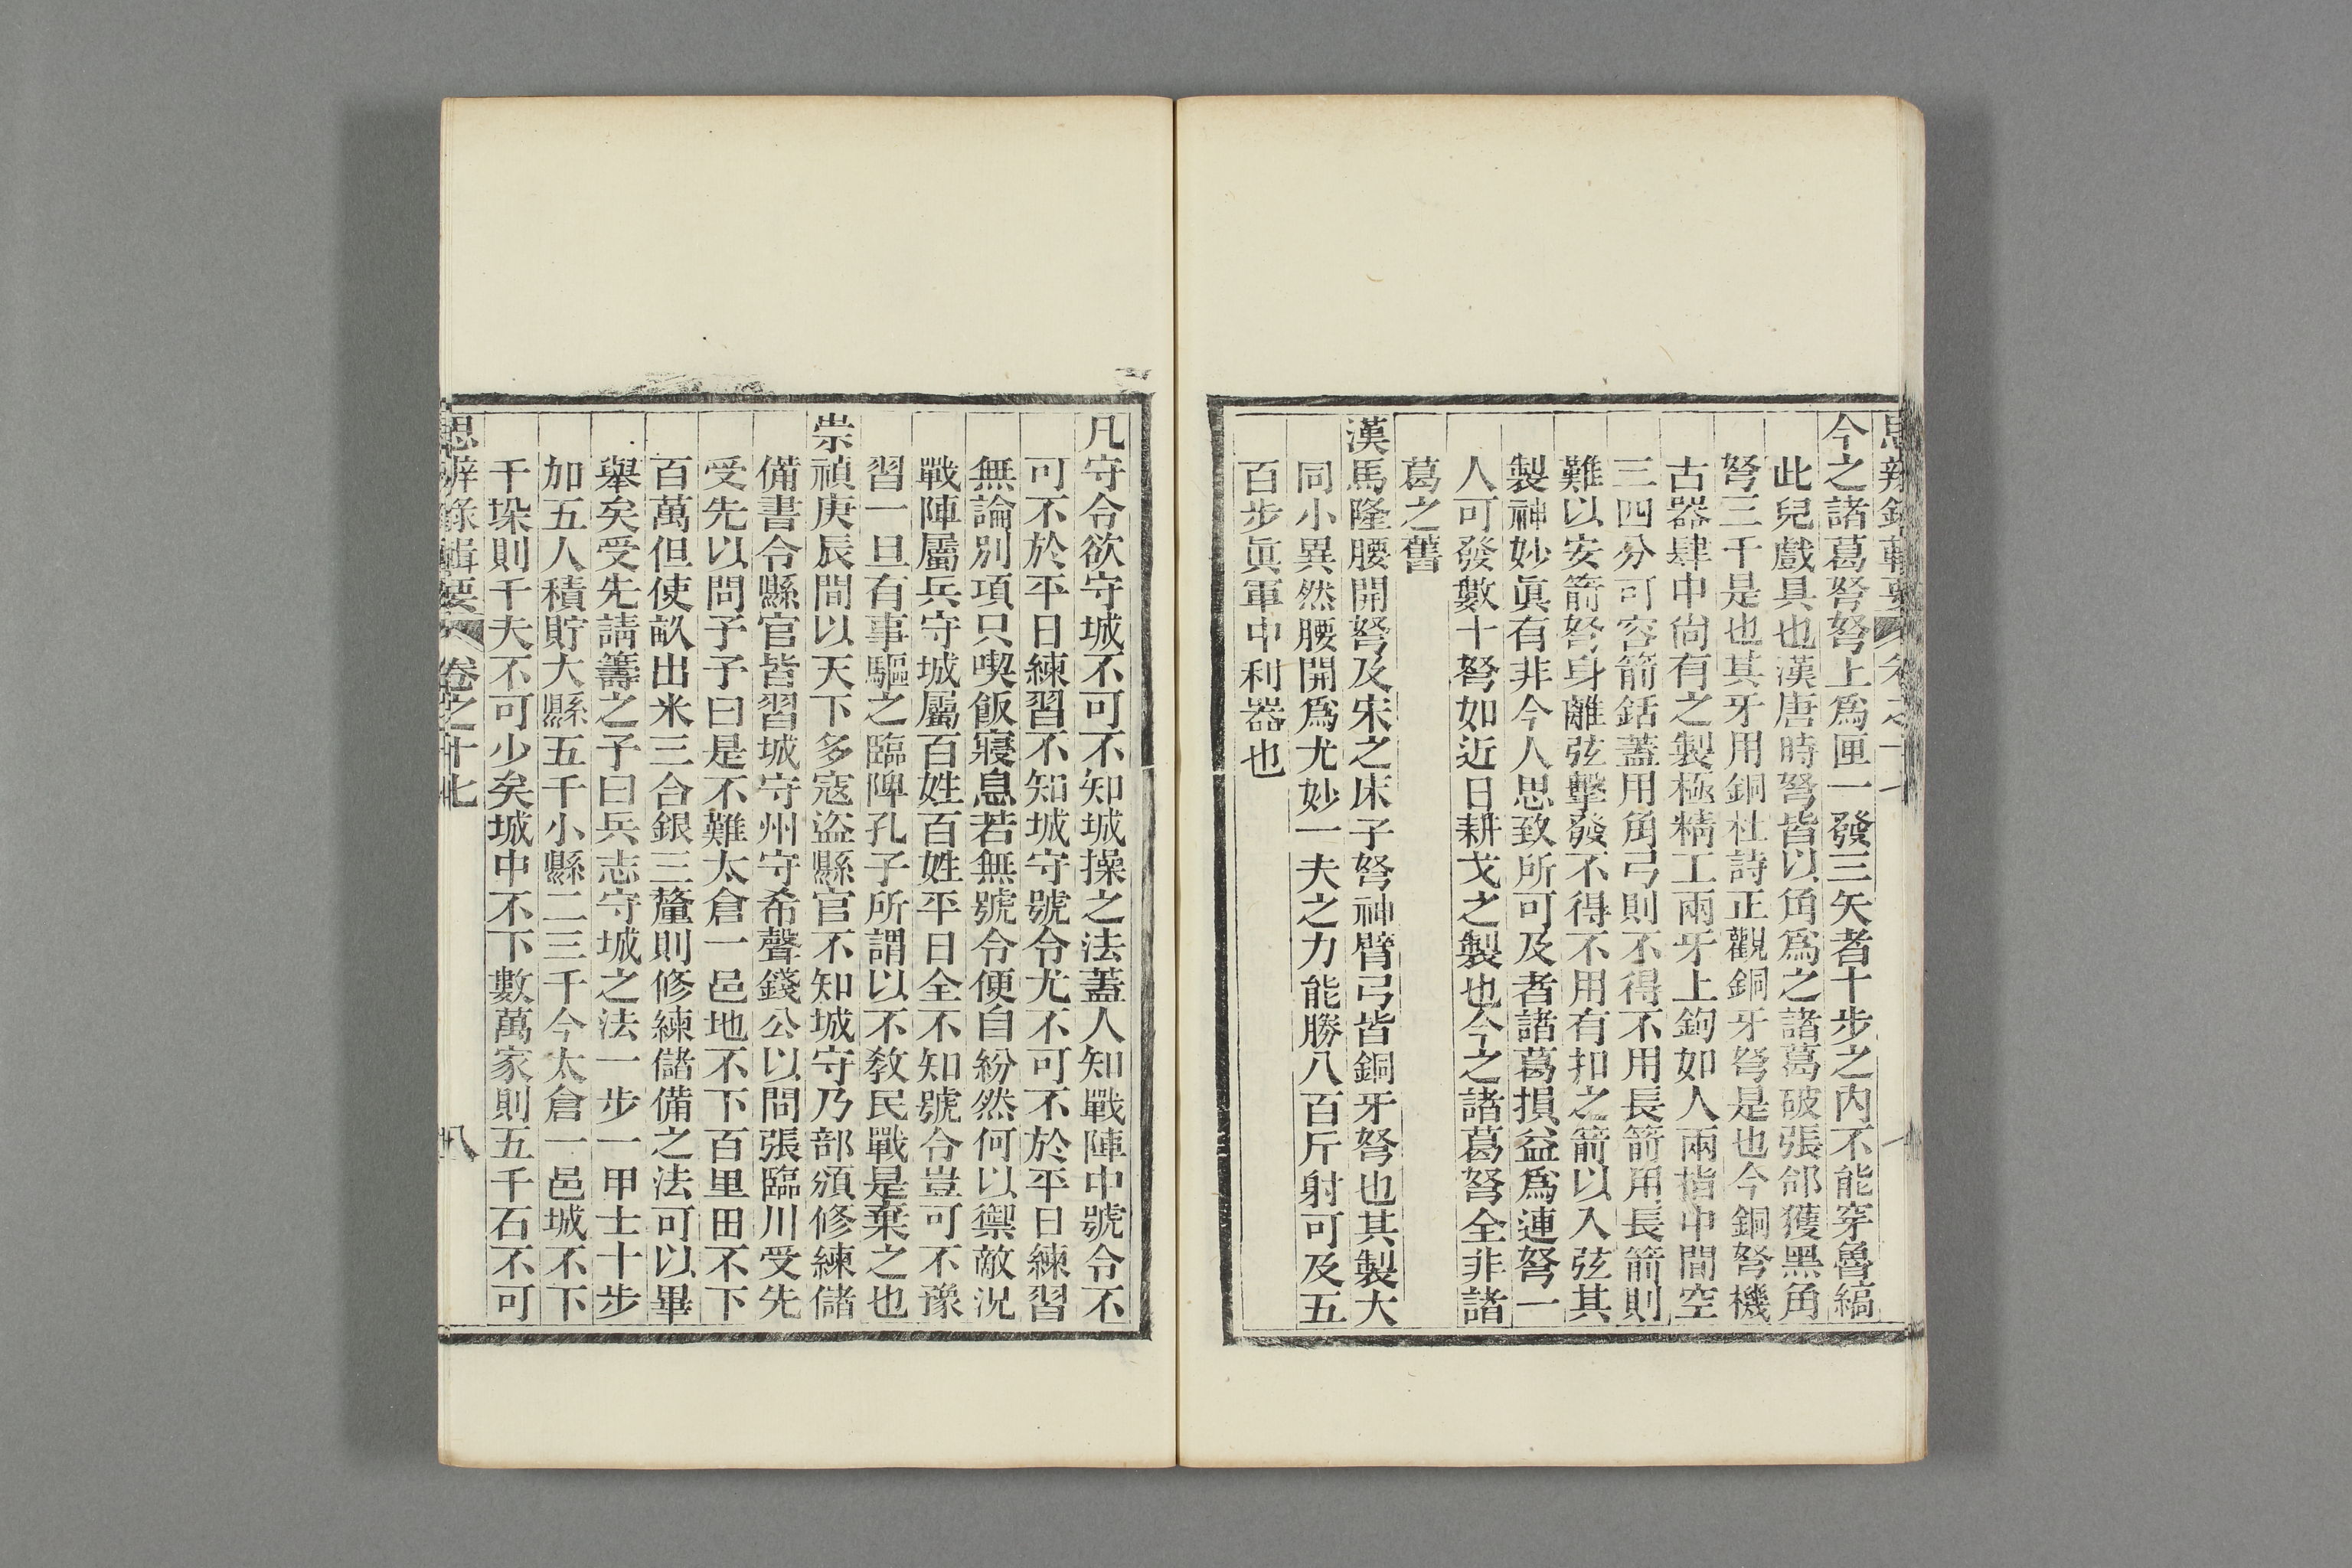 今之諸葛弩弩上爲匣一發三矢者十步之內不能穿魯縞
此兒戲具也漢唐時弩皆以角爲之諸葛破張郃獲黑角
弩三千是也其牙用銅杜詩正觀銅牙弩是也今銅弩機
古器肆中尙有之製極精工兩牙上鉤如人兩指中間空
三四分可容箭銛蓋用角弓則不得不用長箭用長箭則
難以安箭弩身離弦擊發不得不用有扣之箭以入弦其
製神妙眞有非今人思致所可及者諸葛損益爲連弩一
人可發數十弩如近日耕戈之製也今之諸葛弩全非諸
葛之舊
漢馬隆腰開弩及宋之床子弩神臂弓皆銅牙弩也其製大
同小異然腰開爲尤妙一夫之力能勝八百斤射可及五
百步眞軍中利器也
凡守令欲守城不可不知城操之法蓋人知戰陣中號令不
可不於平日練習不知城守號令尤不可不於平日練習
無論別項只喫飯寢息若無號令便自紛然何以禦敵況
戰陣屬兵守城屬百姓百姓平日全不知號令豈可不豫
習一旦有事驅之臨陴孔子所謂以不敎民戰是棄之也
崇禎庚辰間以天下多寇盜縣官不知城守乃部頒修練儲
備書令縣官皆習城守州守希聲錢公以問張臨川受先
受先以問予予曰是不難太倉一邑地不下百里田不下
百萬但使畝出米三合銀三釐則修練儲備之法可以畢
舉矣受先請籌之予曰兵志守城之法一步一甲士十步
加五人積貯大縣五千小縣二三千今太倉一邑城不下
千垛則千夫不可少矣城中不下數萬家則五千石不可
思辨錄輯要 卷之十七 八